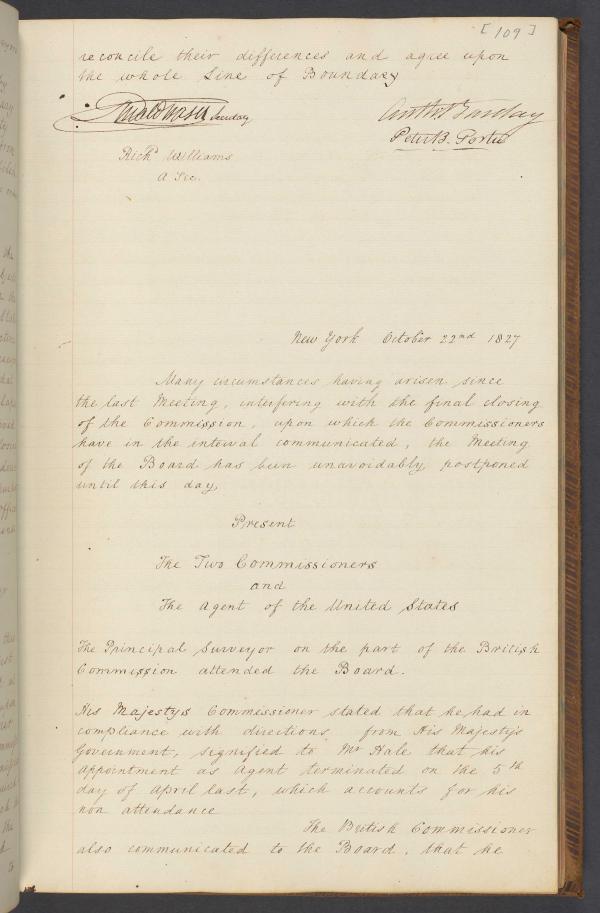 [109]
reconcile their differences and agree upon
the whole Line of Boundary
Donald Fraser Secretary
Anth Barclay
Peter B. Porter
Richd Williams
A Sec.
New York October 22nd 1827
Many circumstances having arisen since
the last Meeting, interfering with the final closing
of the Commission, upon which the Commissioners
have in the interval communicated, the Meeting
of the Board has been unavoidably postponed
until this day,
Present
The Two Commissioners
and
The Agent of the United States
The Principal Surveyor on the part of the British
Commission attended the Board.
His Majestys Commissioner stated that he had in
compliance with directions from His Majestys
Government, signified to Mr Hale that his
appointment as Agent terminated on the 5th
day of April last, which accounts for his
non attendance
The British Commissioner
also communicated to the Board, that he